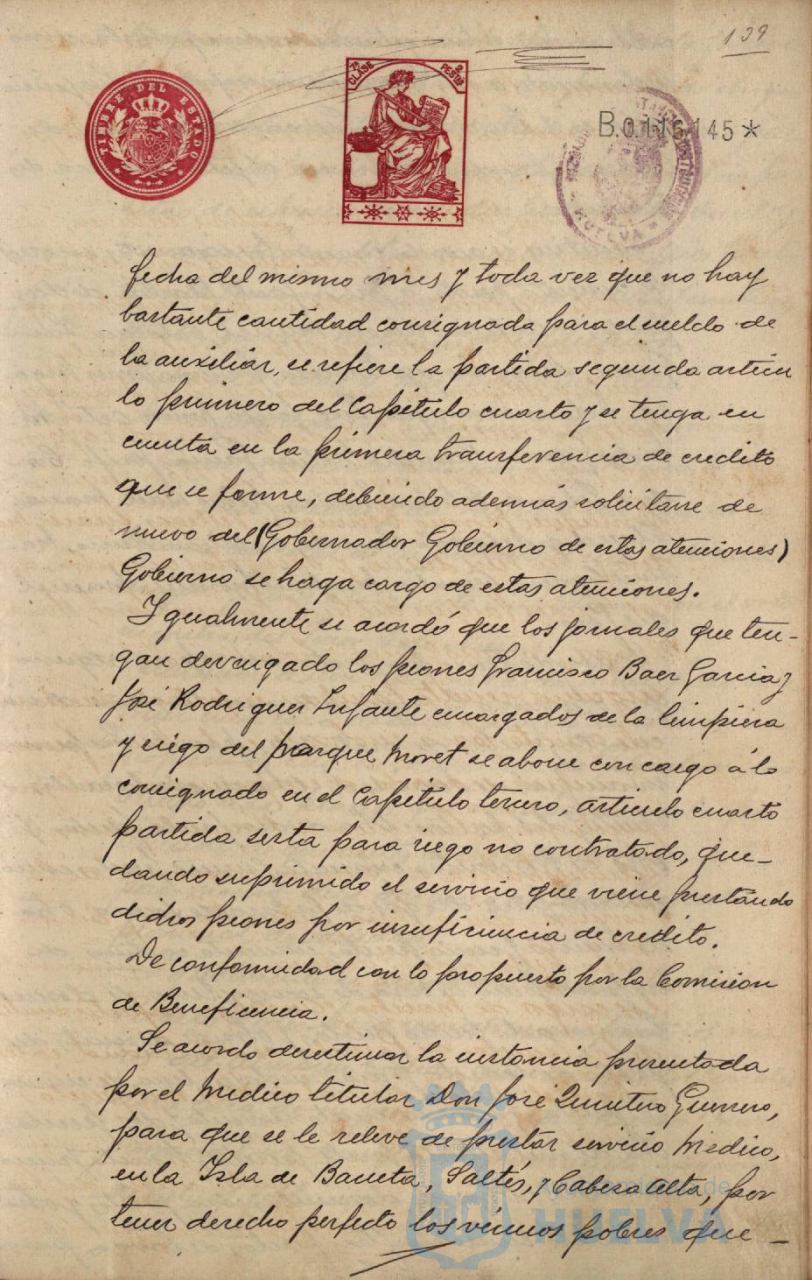 139
TIMBRE DEL ESTADO
7ª CLASE 2 PESTAS
B.0116.145*
HUELVA
fecha del mismo mes y toda vez que no hay
bastante cantidad consignada para el sueldo de
la auxiliar, se refiere la partida segunda articu
lo primero del Capitulo cuarto y se tenga en
cuenta en la primera transferencia de credito
que se forme, debiendo además solicitarse de
nuevo del (Gobernador Gobierno de estas atenciones)
Gobierno se haga cargo de estas atenciones.
Igualmente se acordó que los jornales que ten-
gan devengado los peones Francisco Baez Garcia y
José Rodriguez Infante encargados de la limpieza
y riego del parque Moret se abone con cargo á lo
consignado en el Capitulo tercero, articulo cuarto
partida sexta para riego no contratado, que-
dando suprimido el servicio que viene prestando
dichos peones por insuficiencia de credito.
De conformidad con lo propuesto por la Comision
de Beneficencia.
Se acordo desestimar la instancia presentada
por el Medico titular Don José Quintero Guerrero,
para que se le releve de prestar servicio Medico,
en la Isla de Bacuta, Saltés, y Cabeza alta, por
tener derecho perfecto los vecinos pobres que-
HUELVA